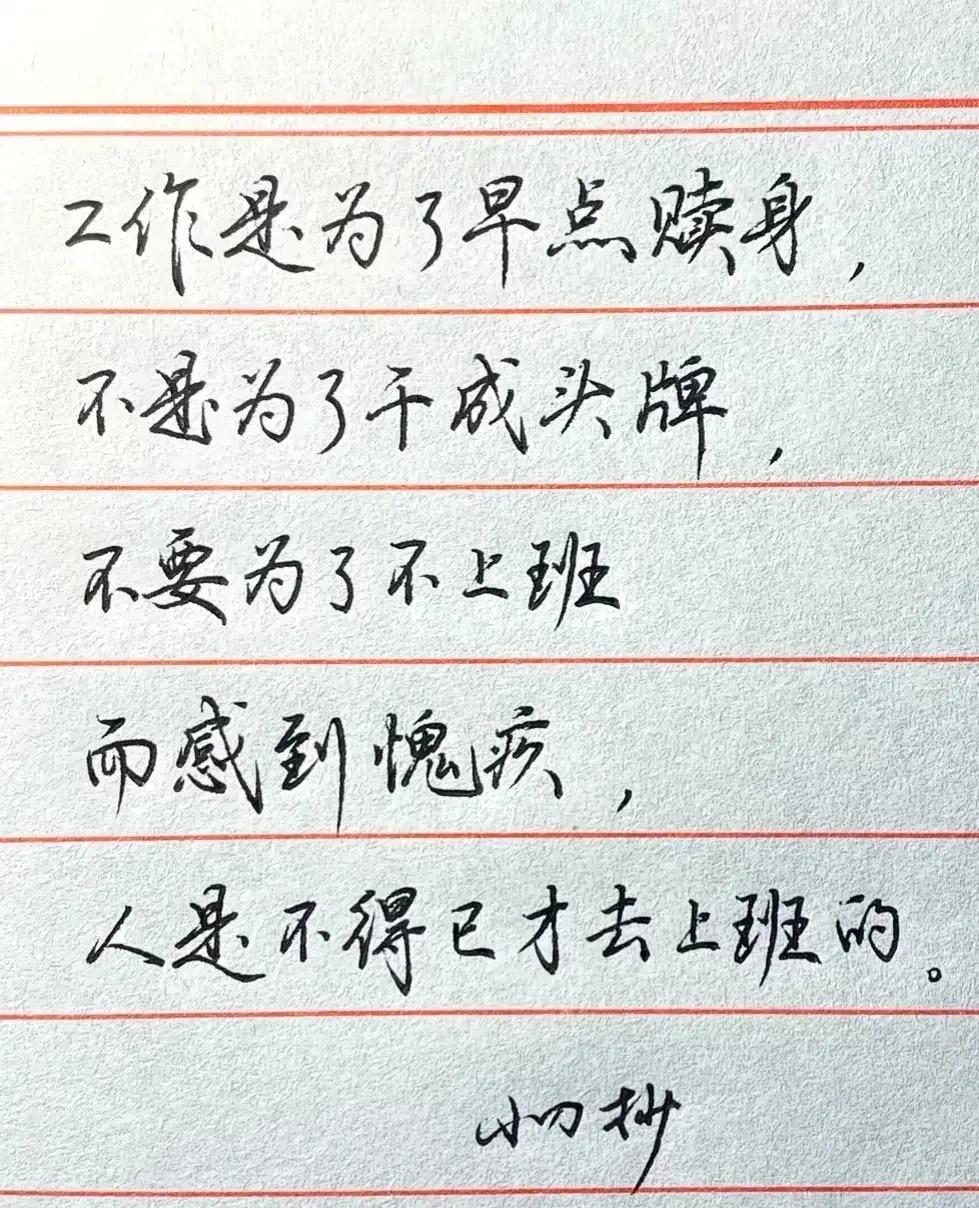 工作是为了早点赎身，
不是为了干成头牌，
不要为了不上班
而感到愧疚，
人是不得已才去上班的。
抄